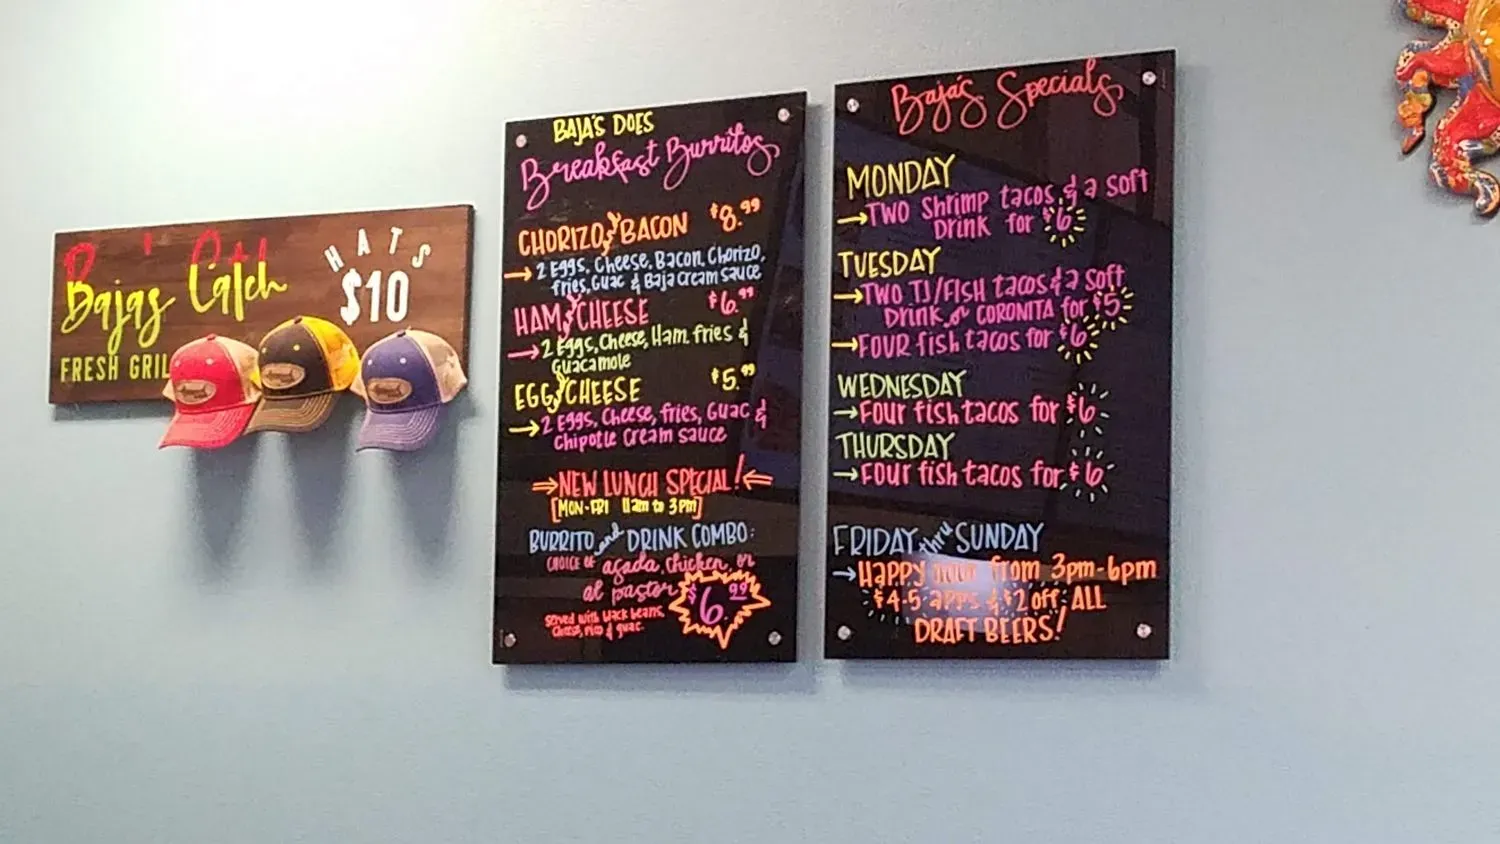 Bajas Catch
FRESH GRIL
HATS
$10
BAJA'S DOES
Breakfast Burritos
CHORIZO & BACON $8.99
→ 2 Eggs, Cheese, Bacon, Chorizo,
fries, Guac & Baja Cream sauce
HAM & CHEESE $6.99
→ 2 Eggs, Cheese, Ham, fries &
Guacamole
EGG & CHEESE $5.99
→ 2 Eggs, Cheese, fries, Guac &
Chipotle Cream sauce
⇒ NEW LUNCH SPECIAL! ⇐
[MON-FRI 11am to 3pm]
BURRITO and DRINK COMBO:
CHOICE OF asada, chicken, or
al pastor $6.99
served with black beans,
cheese, pico & guac.
Baja's Specials
MONDAY
→ TWO Shrimp tacos & a soft
Drink for $6
TUESDAY
→ TWO TJ/FISH tacos & a soft
Drink or CORONITA for $5
→ FOUR fish tacos for $6
WEDNESDAY
→ Four fish tacos for $6
THURSDAY
→ Four fish tacos for $6
FRIDAY thru SUNDAY
→ Happy hour from 3pm-6pm
$4-5 apps & $2 off ALL
DRAFT BEERS!